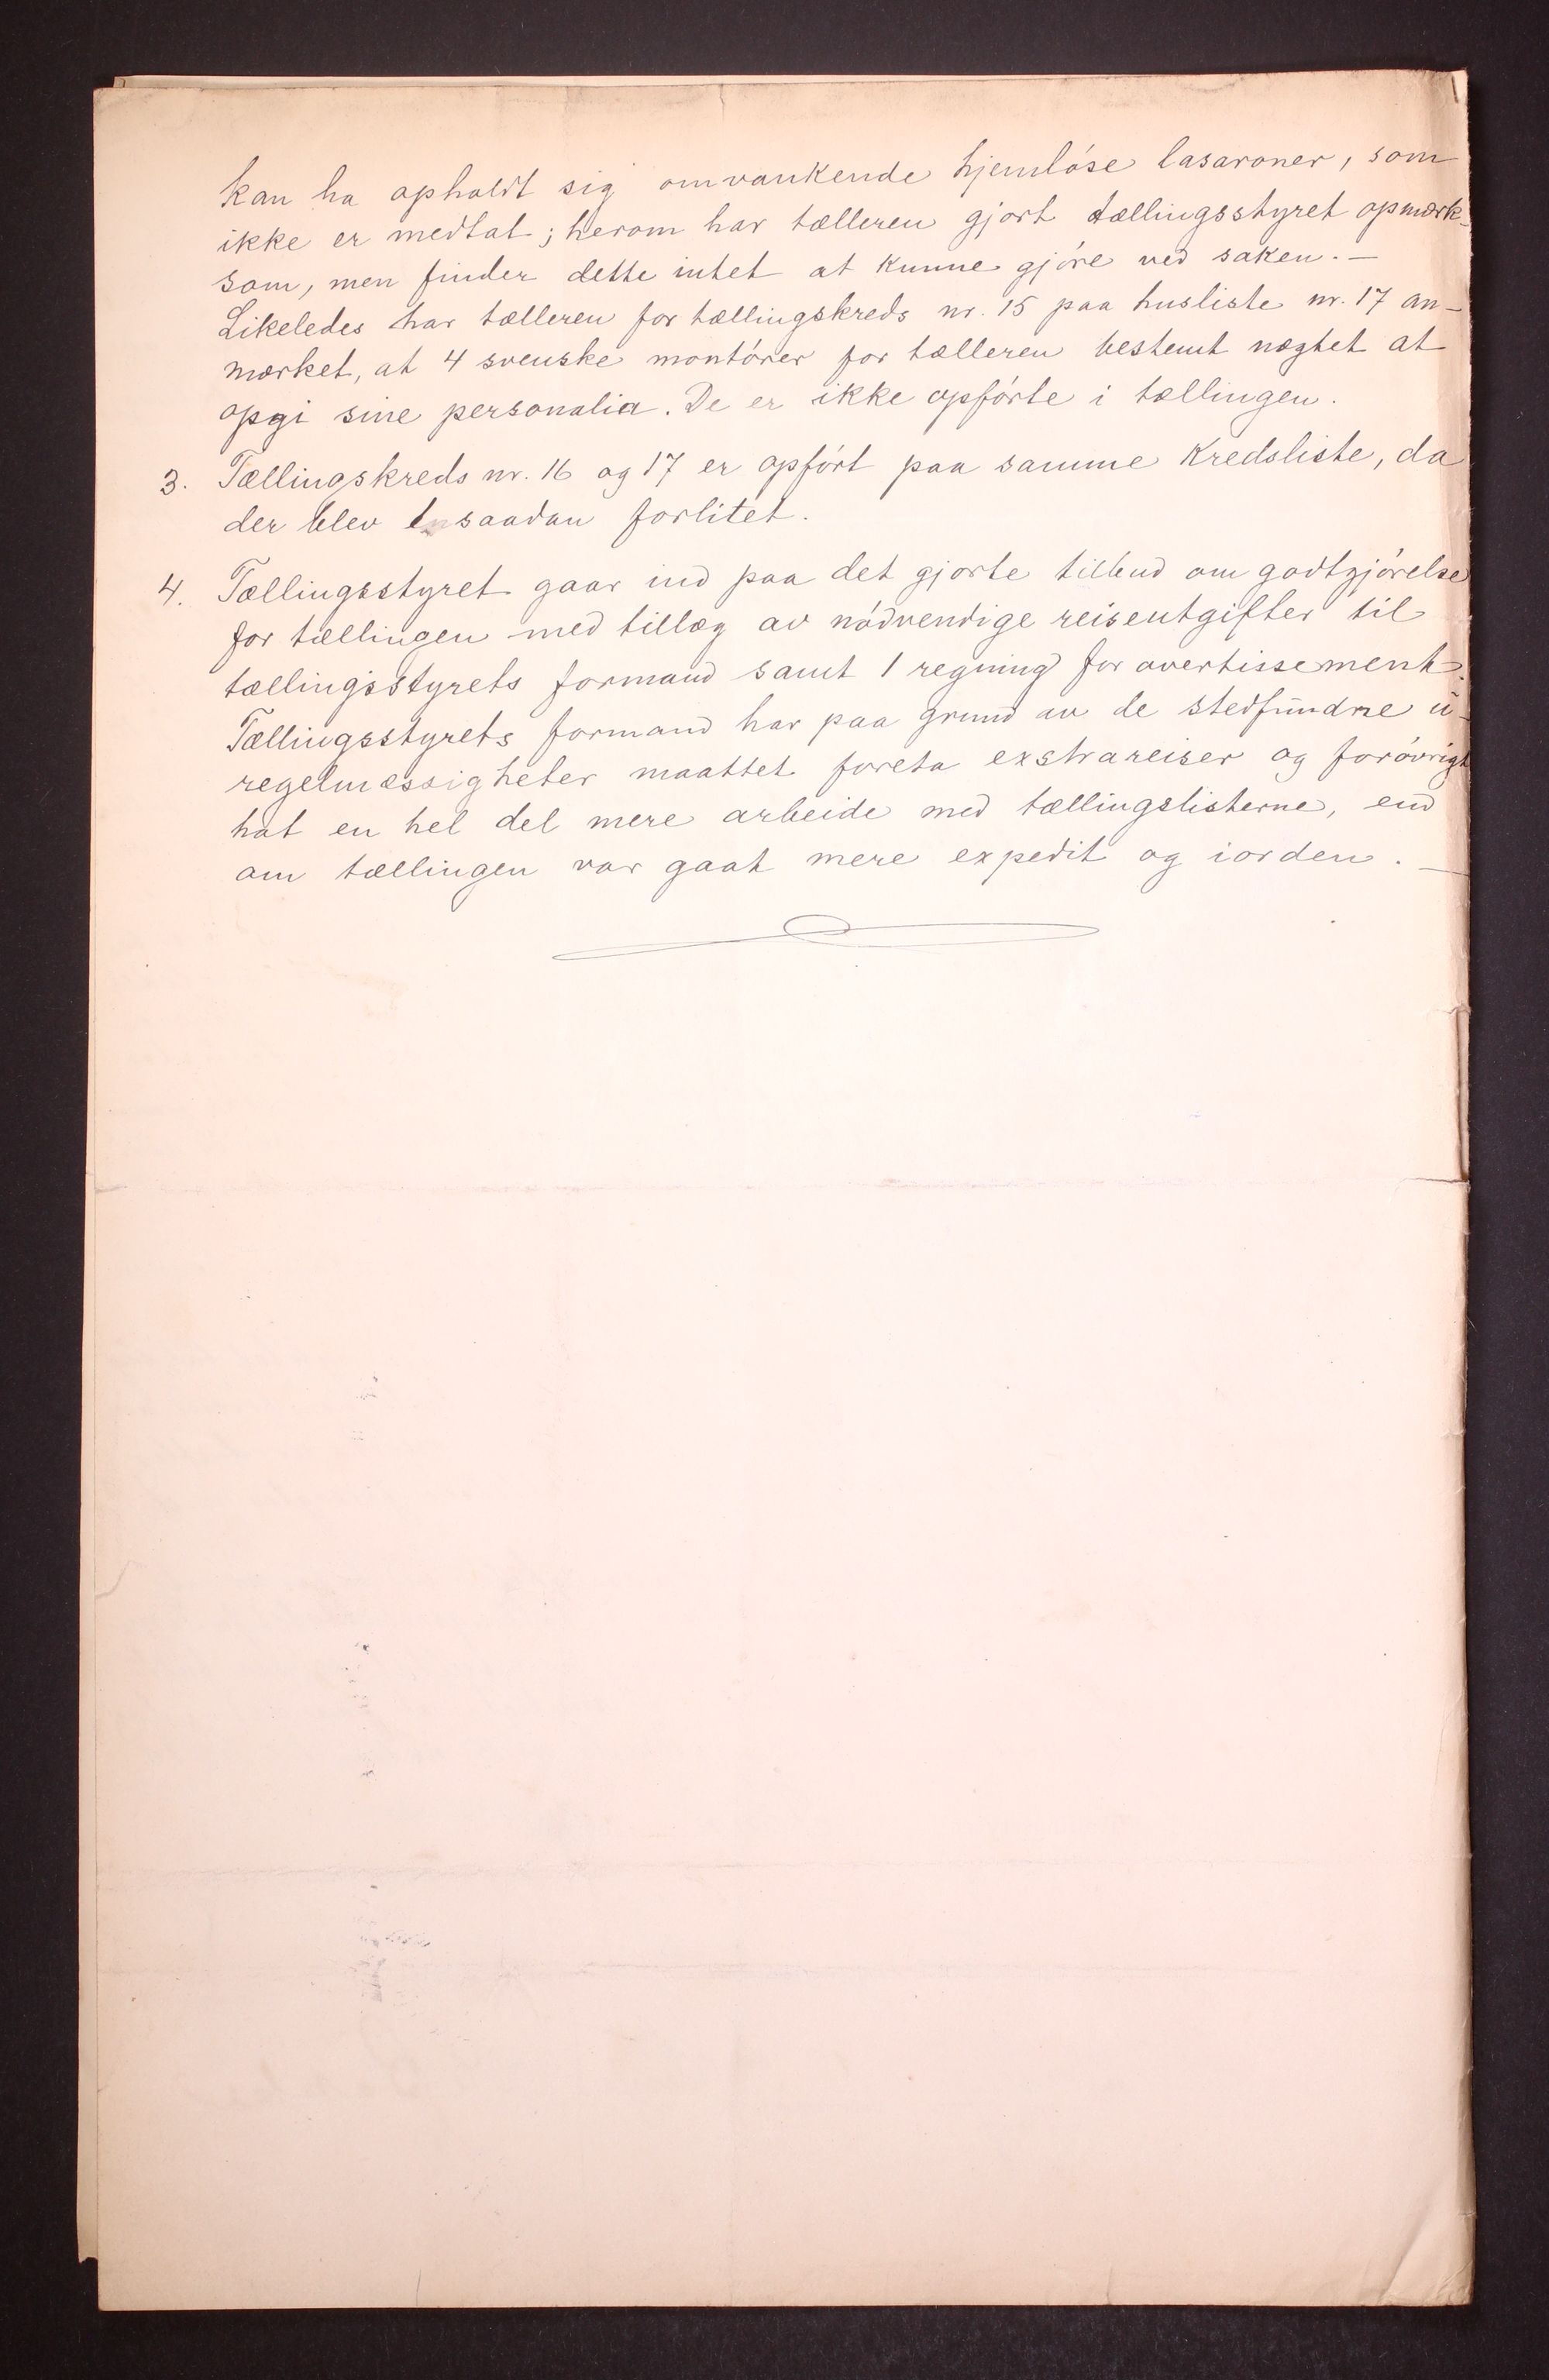 kan ha opholdt sig omvankende hjemløse lasaroner, som
ikke er medtat; herom har tælleren gjort tællingsstyret opmærk-
som, men finder dette intet at kunne gjøre ved saken. —
Likeledes har tælleren for tællingskreds nr. 15 paa husliste nr. 17 an-
mærket, at 4 svenske montører for tælleren bestemt nægtet at
opgi sine personalia. De er ikke opførte i tællingen.
3. Tællingskreds nr. 16 og 17 er opført paa samme kredsliste, da
der blev 1 saadan forlitet.
4. Tællingsstyret gaar ind paa det gjorte tilbud om godtgjørelse
for tællingen med tillæg av nødvendige reiseutgifter til
tællingsstyrets formand samt 1 regning for avertissement.
Tællingsstyrets formand har paa grund av de stedfundne u-
regelmæssigheter maattet foreta exstrareiser og forøvrigt
hat en hel del mere arbeide med tællingslisterne, end
om tællingen var gaat mere expedit og iorden. —